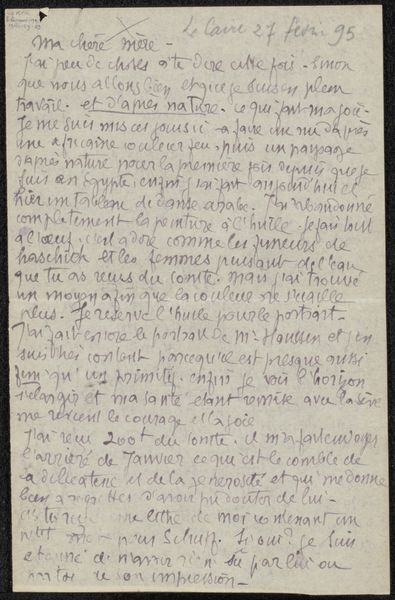 Le Caire 27 fevri 95
Ma chère Mère -
J'ai peu de choses à te dire cette fois - sinon
que nous allons bien et que je suis en plein
travail. et d'après nature. ce qui fait ma joie -
Je me suis mis ces jours ci à faire un nu d'après
une africaine couleur feu, puis un paysage
d'après nature pour la première fois depuis que je
suis en Egypte, enfin j'en fait aujourd'hui et
hier un tableau de danse arabe. J'ai abandonné
complètement la peinture à l'huile. Je fais tout
à l'oeuf, c'est adoré comme les fumeurs de
haschich et les femmes puisant de l'eau
que tu as reçus du Comte. mais j'ai trouvé
un moyen afin que la couleur ne s'écaille
plus. Je reserve l'huile pour le portrait -
J'ai fait encore le portrait de Mr Hanssen et j'en
suis très content parce qu'il est presque aussi
fin qu'un primitif. enfin je vois l'horizon
s'élargir et ma santé étant remise avec la sève
me revient le courage et la joie
J'ai reçu 200f du Comte. il m'a fait envoyer
l'arriéré de Janvier ce qui est le comble de
la délicatesse et de la generosité et qui me donne
bien à regrettes d'avoir pu douter de lui -
une lettre de moi contenant un
petit mot pour Schuff. Je suis
étonné de n'avoir rien su par lui ou
par toi de son impression -